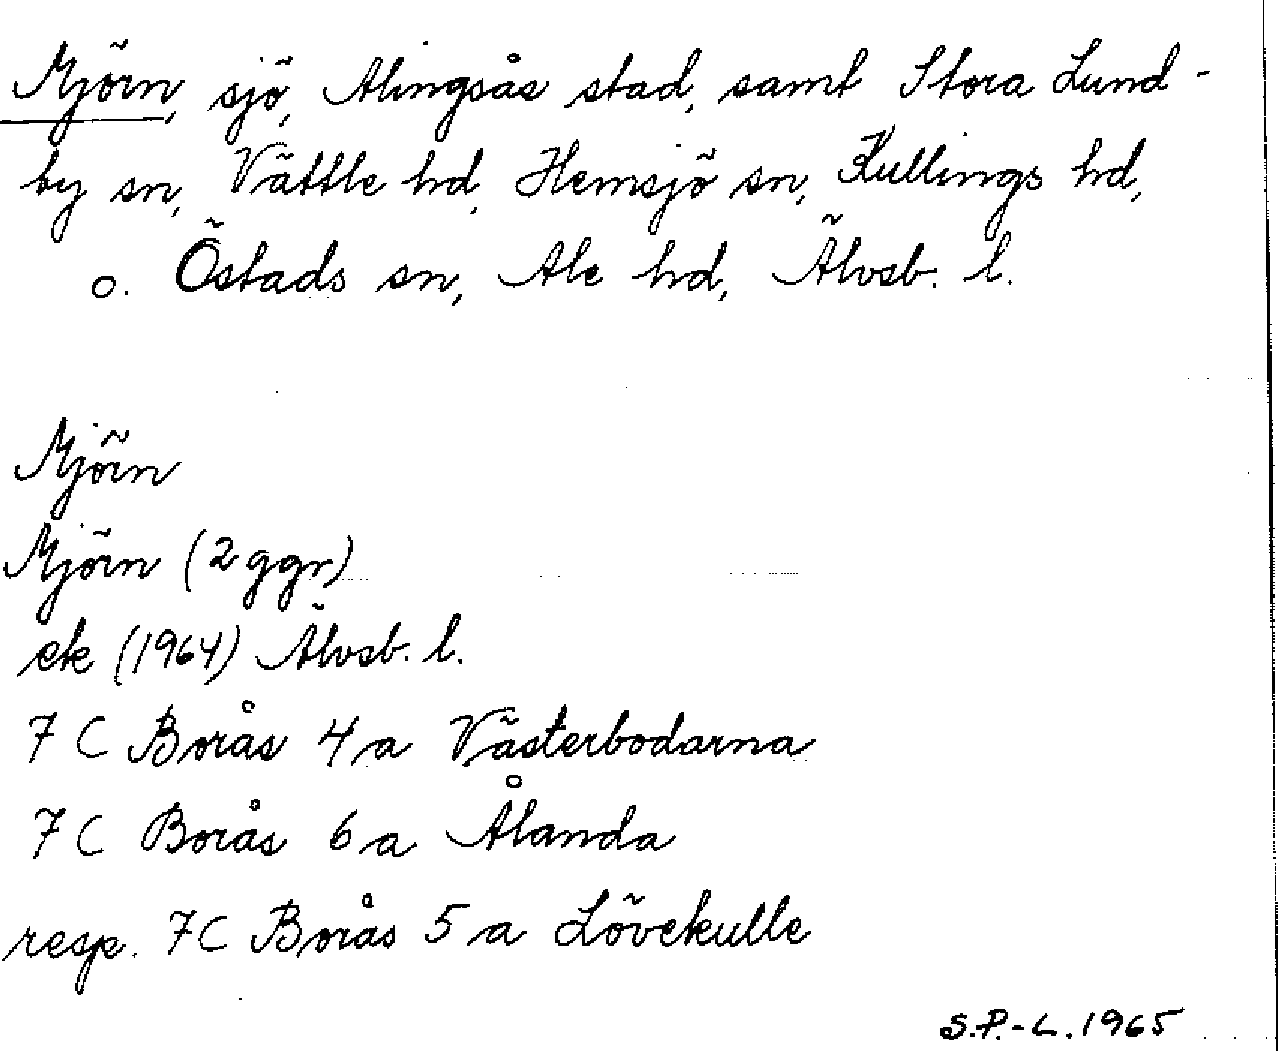 Mjörn, sjö, Alingsås stad, samt Stora Lund-
by sn, Vättle hd, Hemsjö sn, Kullings hd,
o. Östads sn, Ale hd, Älvsb. l.
Mjörn
Mjörn (2 ggr)
ek (1964) Älvsb. l.
7 C Borås 4 a Västerbodarna
7 C Borås 6 a Ålanda
resp. 7 C Borås 5 a Lövekulle
S.P.-L. 1965